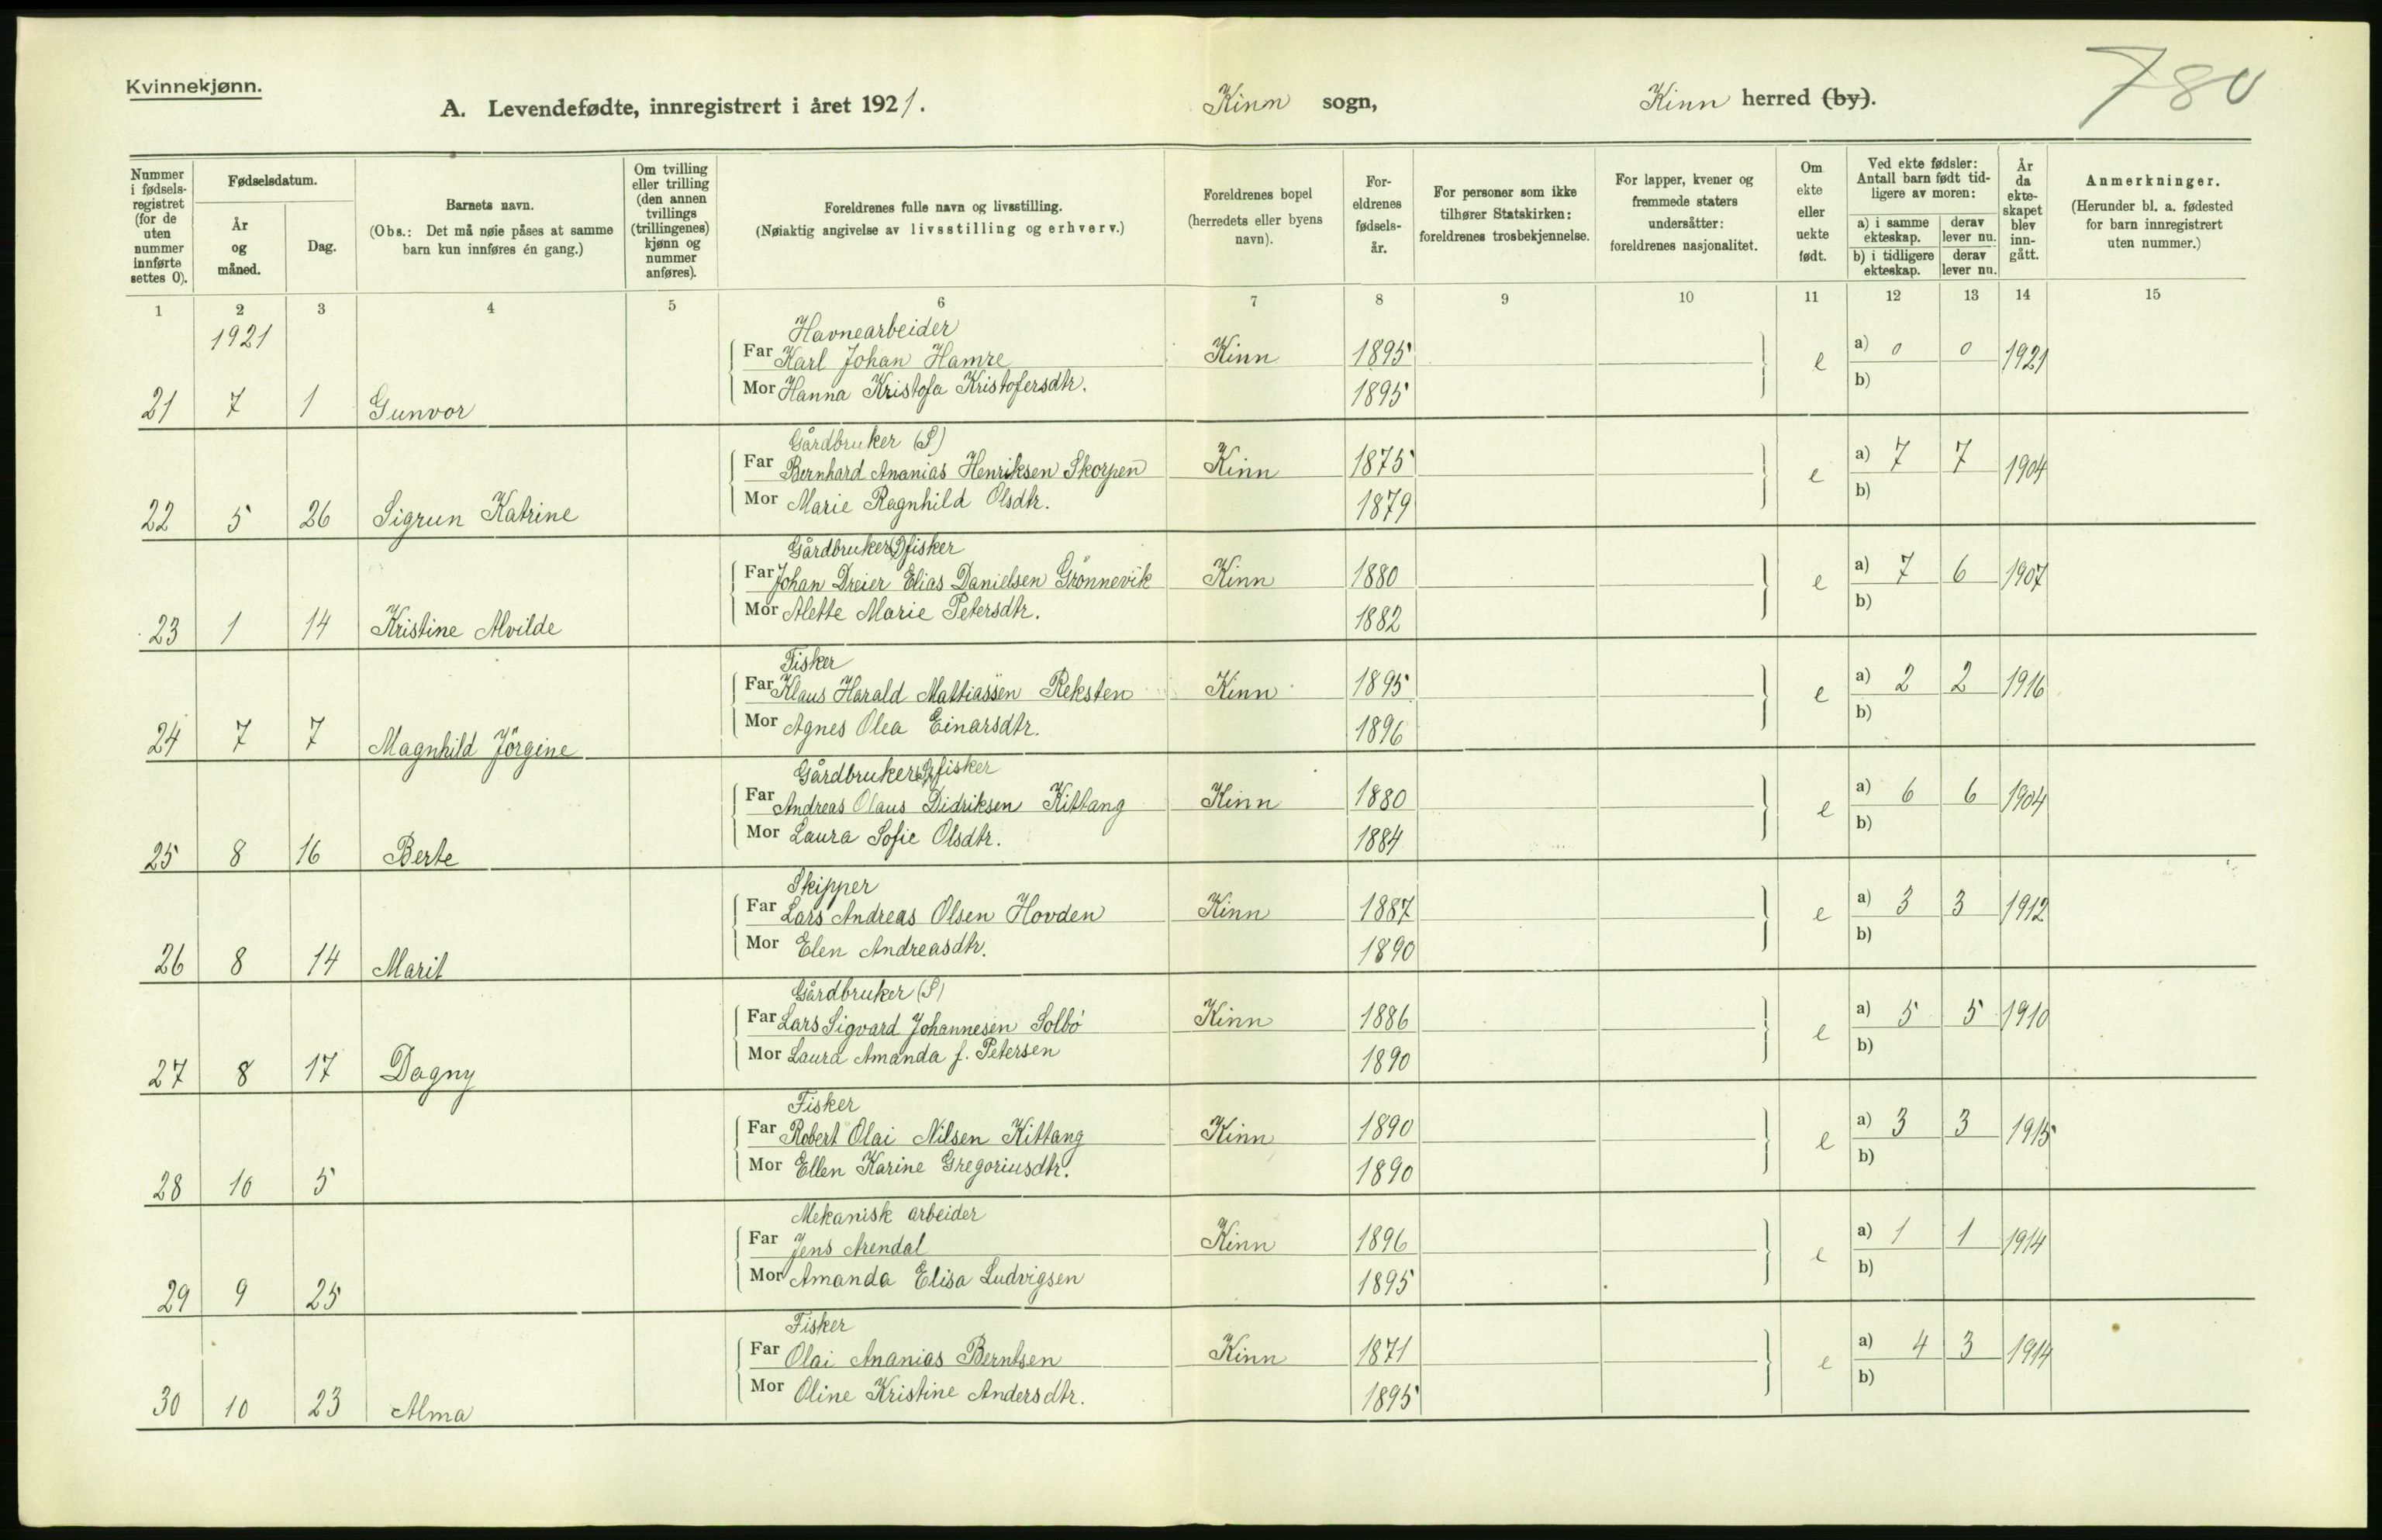 Kvinnekjønn.
A. Levendefødte, innregistrert i året 1921.
Kinn sogn,
Kinn herred (by).
780
Nummer i fødsels-registret (for de uten nummer innførte settes 0).
Fødselsdatum.
År og måned.
Dag.
Barnets navn.
(Obs.: Det må nøie påses at samme barn kun innføres én gang.)
Om tvilling eller trilling (den annen tvillings (trillingenes) kjønn og nummer anføres).
Foreldrenes fulle navn og livsstilling.
(Nøiaktig angivelse av livsstilling og erhverv.)
Foreldrenes bopel
(herredets eller byens navn).
For-eldrenes fødsels-år.
For personer som ikke tilhører Statskirken: foreldrenes trosbekjennelse.
For lapper, kvener og fremmede staters undersåtter: foreldrenes nasjonalitet.
Om ekte eller uekte født.
Ved ekte fødsler:
Antall barn født tid-ligere av moren:
a) i samme ekteskap.
derav lever nu.
b) i tidligere ekteskap.
derav lever nu.
År da ekte-skapet blev inn-gått.
Anmerkninger.
(Herunder bl. a. fødested for barn innregistrert uten nummer.)
1 2 3 4 5 6 7 8 9 10 11 12 13 14 15
1921
Havnearbeider
Far Karl Johan Hamre Kinn 1895 e a) 0 0 1921
Mor Hanna Kristofa Kristofersdtr. 1895 b)
21 7 1 Gunvor
Gårdbruker (S)
Far Bernhard Ananias Henriksen Skorpen Kinn 1875 e a) 7 7 1904
Mor Marie Ragnhild Olsdtr. 1879 b)
22 5 26 Sigrun Katrine
Gårdbruker (S) fisker
Far Johan Dreier Elias Danielsen Grönnevik Kinn 1880 e a) 7 6 1907
Mor Alette Marie Petersdtr. 1882 b)
23 1 14 Kristine Alvilde
Fisker
Far Klaus Harald Mattiassen Reksten Kinn 1895 e a) 2 2 1916
Mor Agnes Olea Einarsdtr. 1896 b)
24 7 7 Magnhild Jörgine
Gårdbruker (S) fisker
Far Andreas Olaus Didriksen Kittang Kinn 1880 e a) 6 6 1904
Mor Laura Sofie Olsdtr. 1884 b)
25 8 16 Berte
Skipper
Far Lars Andreas Olsen Hovden Kinn 1887 e a) 3 3 1912
Mor Elen Andreasdtr. 1890 b)
26 8 14 Marit
Gårdbruker (S)
Far Lars Sigvard Johannesen Solbö Kinn 1886 e a) 5 5 1910
Mor Laura Amanda f. Petersen 1890 b)
27 8 17 Dagny
Fisker
Far Robert Olai Nilsen Kittang Kinn 1890 e a) 3 3 1915
Mor Ellen Karine Gregoriusdtr. 1890 b)
28 10 5
Mekanisk arbeider
Far Jens Arendal Kinn 1896 e a) 1 1 1914
Mor Amanda Elisa Ludvigsen 1895 b)
29 9 25
Fisker
Far Olai Ananias Berntsen Kinn 1871 e a) 4 3 1914
Mor Oline Kristine Andersdtr. 1895 b)
30 10 23 Alma